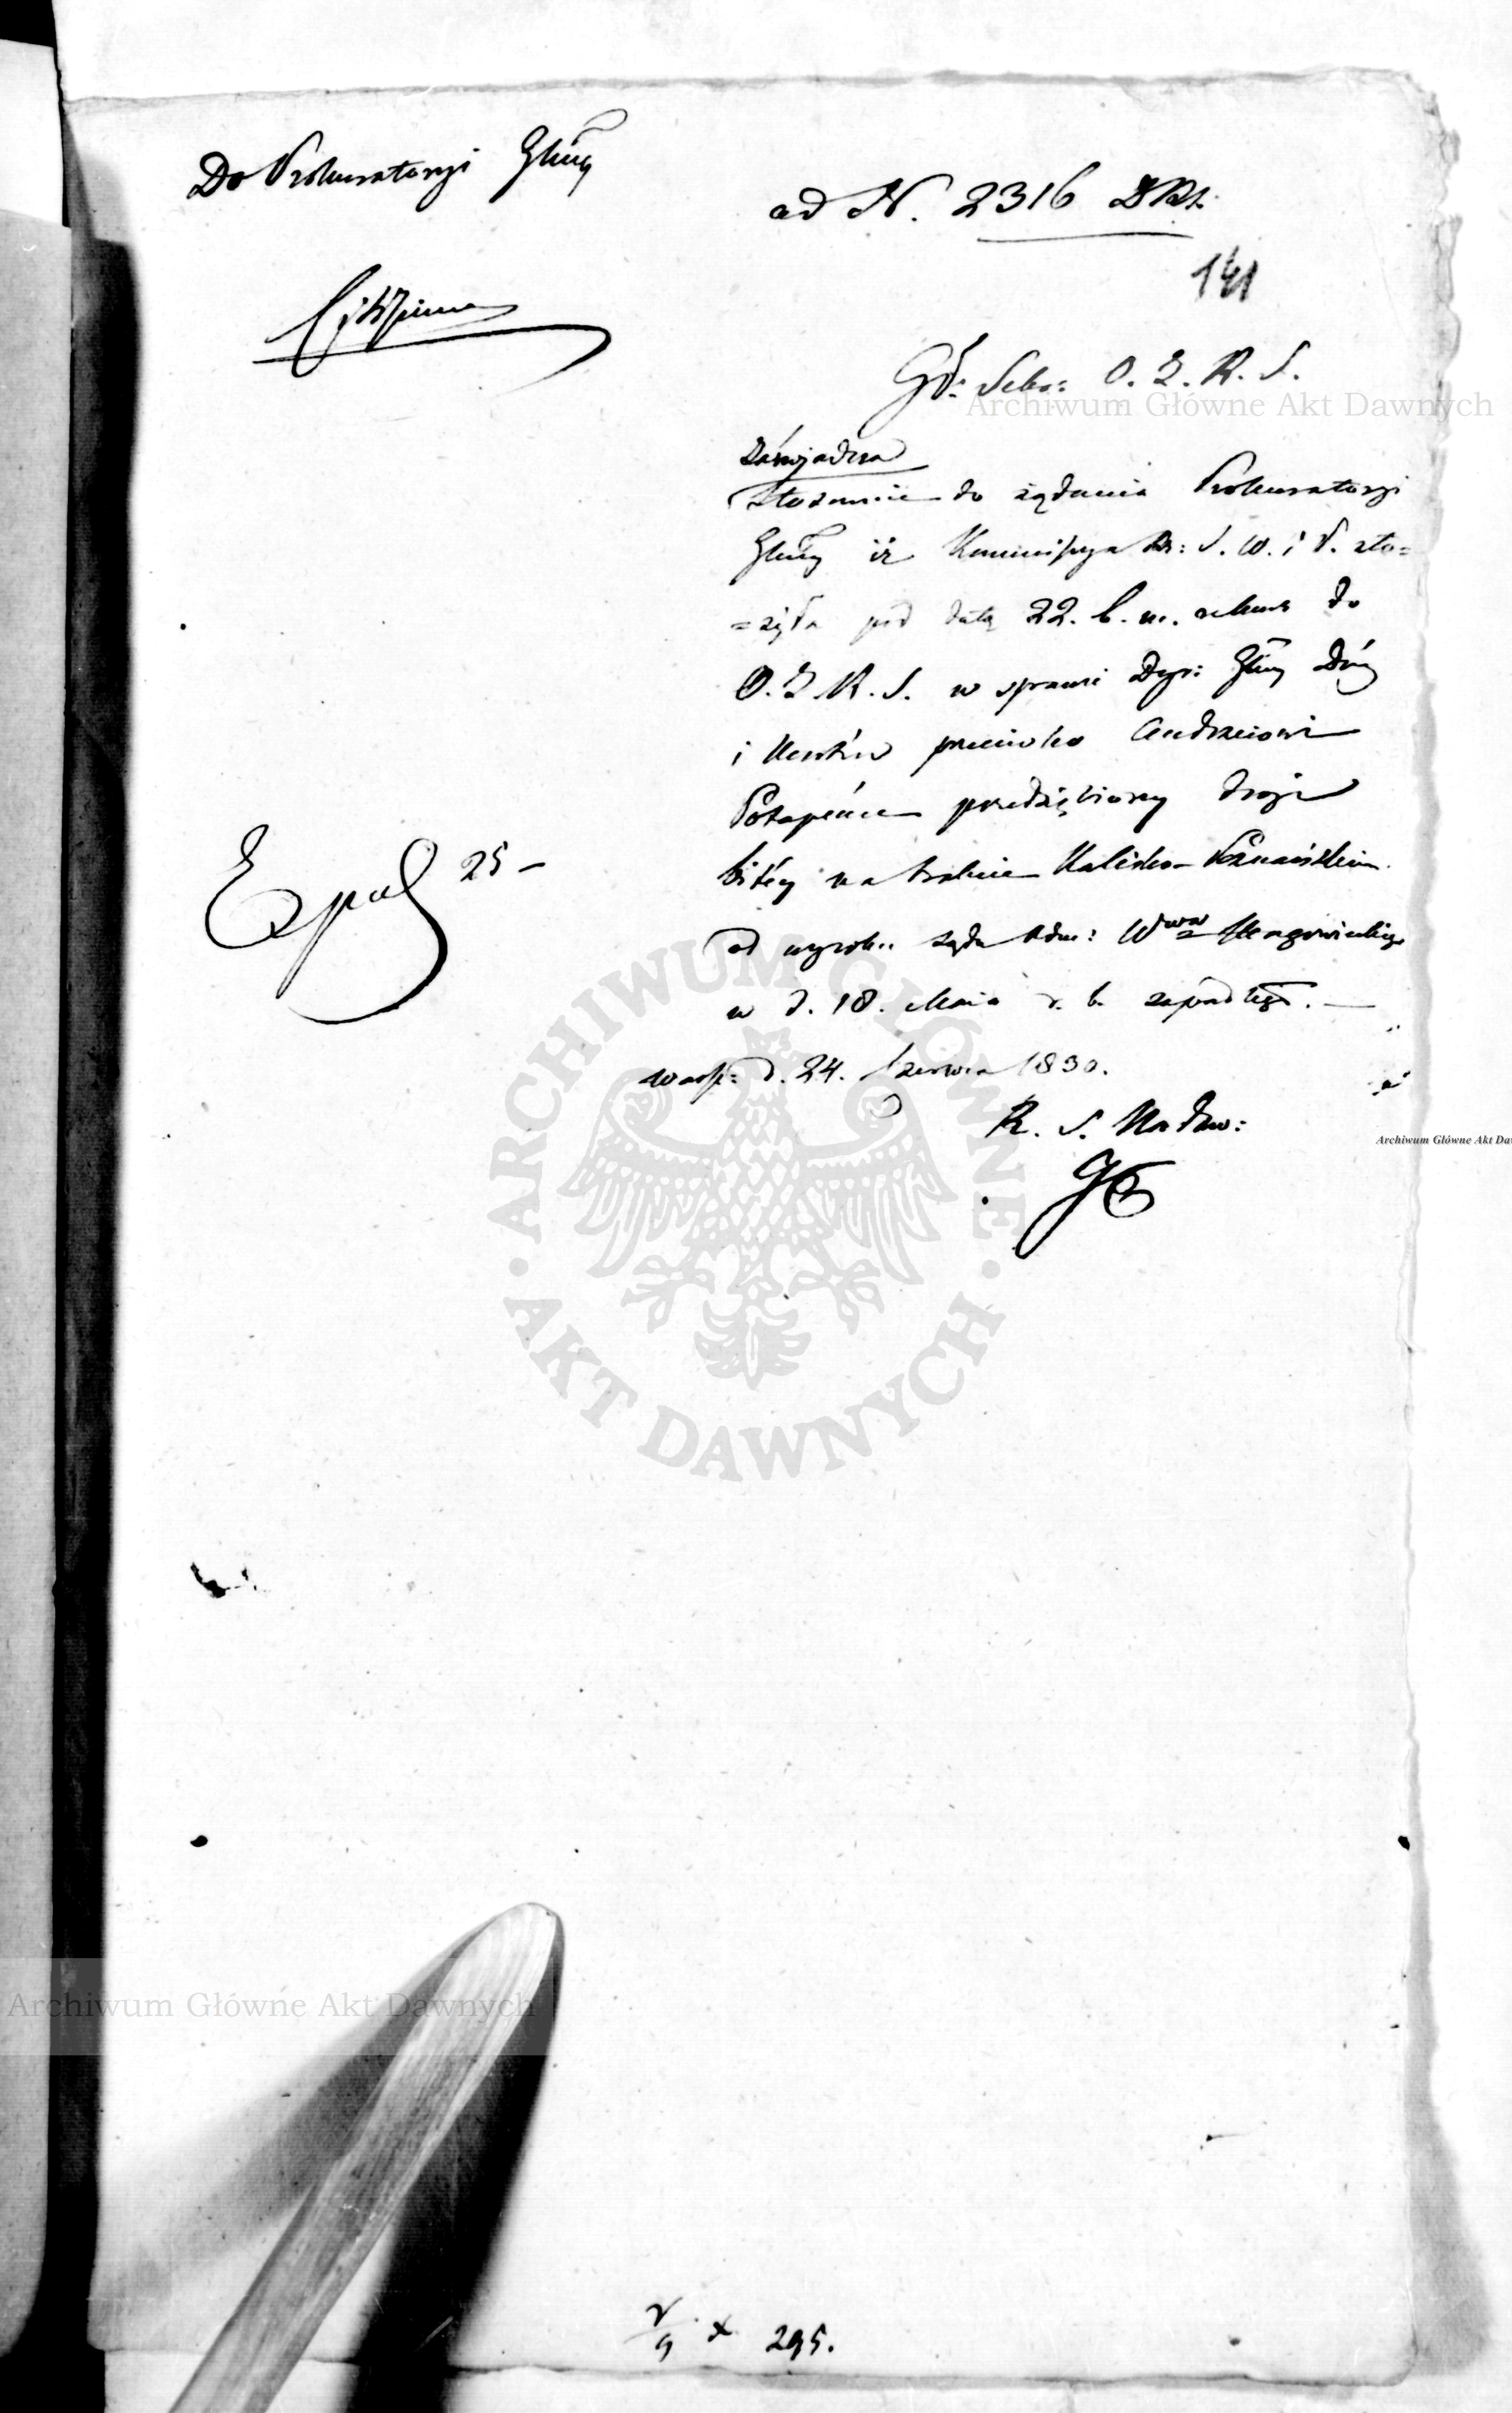 Do Prokuratoryi Głney
ad N. 2316 DRS.
141
Gł: Sekr: O. Z. R. S.
Zaświadcza
Stosownie do żądania Prokuratoryi
Głney iż Kommissya Rz: S. W. i P. zło=
=żyła pod datą 22. b. m. rekurs do
O. Z. R. S. w sprawie Dyr: Głney Dróg
i Mostów przeciwko Andrzeiowi
przedsiębiorcy drogi
bitéy na trakcie Kalisko-Poznańskim
od wyroku Sądu Adm: Wwa Mazowieckiego
w d. 18. Maia r. b. zapadłego.
Warsz: d. 24. Czerwca 1830.
R. S. Nadzw:
Exped 25
295.
Archiwum Główne Akt Dawnych
ARCHIWUM GŁÓWNE AKT DAWNYCH
Archiwum Główne Akt Da
Archiwum Główne Akt Dawnych